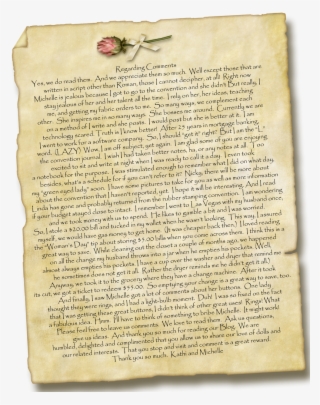 Regarding Comments
Yes, we do read them. And we appreciate them so much. Well except those that are
written in script other than Roman, those I cannot decipher, at all. Right now
Michelle is jealous because I got to go to the convention and she didn't. But really, I
stay jealous of her and her talent all the time. I rely on her, her ideas, teaching
me, and getting my fabric orders to me. So many ways, we complement each
other. She inspires me in so many ways. She bosses me around. Currently we are
on a method of I write and she posts. I would post but she is better at it. I am
technology scared. Truth is I know better! After 25 years in mortgage banking,
I went to work for a software company. So, I should "got it" right. But I am the "L"
(LAZY). Wow, I am off subject, yet again. I am glad some of you are enjoying
the convention journal. I wish I had taken better notes, ho, or any notes at all. I
excited to sit and write at night when I was ready to call it a day. I even took
a notebook for the purpose. I was stimulated enough to remember what I did on what day,
besides, what's a schedule for if you can't refer to it? Nicky, there will be more about
my "green aged lady" soon. I have some pictures to take for you as well as more information
about the convention that I haven't reported, yet. I hope it will be interesting. And I read
Linda has gone and probably returned from the rubber stamping convention. I am wondering
if your budget stayed close to intact. I remember I went to Las Vegas with my husband once,
and we took money with us to spend. He likes to gamble a bit and I was worried.
So, I stole a $20.00 bill and tucked in my wallet when he wasn't looking. This way, I assured
myself, we would have gas money to get home. (It was cheaper back then.) I loved reading
the "Woman's Day" tip about storing $1.00 bills when you come across them. I think this is
great way to save. While cleaning out the closet a couple of months ago, we happened
on all the change my husband throws into a jar when he empties his pockets. Well,
almost always empties his pockets. I have a cup over the washer and dryer that remind me
he sometimes does not get it all. Rather the dryer reminds me he didn't get it all.)
Anyway, we took it to the grocery where they have a change machine. After it took
its cut, we got a ticket to redeem $53.00. So emptying your change is a great way to save, too.
And finally, I saw Michelle got a lot of comments about her buttons. One lady
thought they were rings, and I had a light-bulb moment. Duh! I was so fixed on the fact
that I was getting these great buttons, I didn't think of other great uses! Rings! What
a fabulous idea. Hmm. I'll have to think of something to bribe Michelle. It might work!
Please feel free to leave us comments. We love to read them. Ask us questions,
give us ideas. And thank you so much for reading our Blog. We are
humbled, delighted and complimented that you allow us to share our love of dolls and
our related interests. That you stop and visit and comment is a great reward.
Thank you so much. Kathi and Michelle